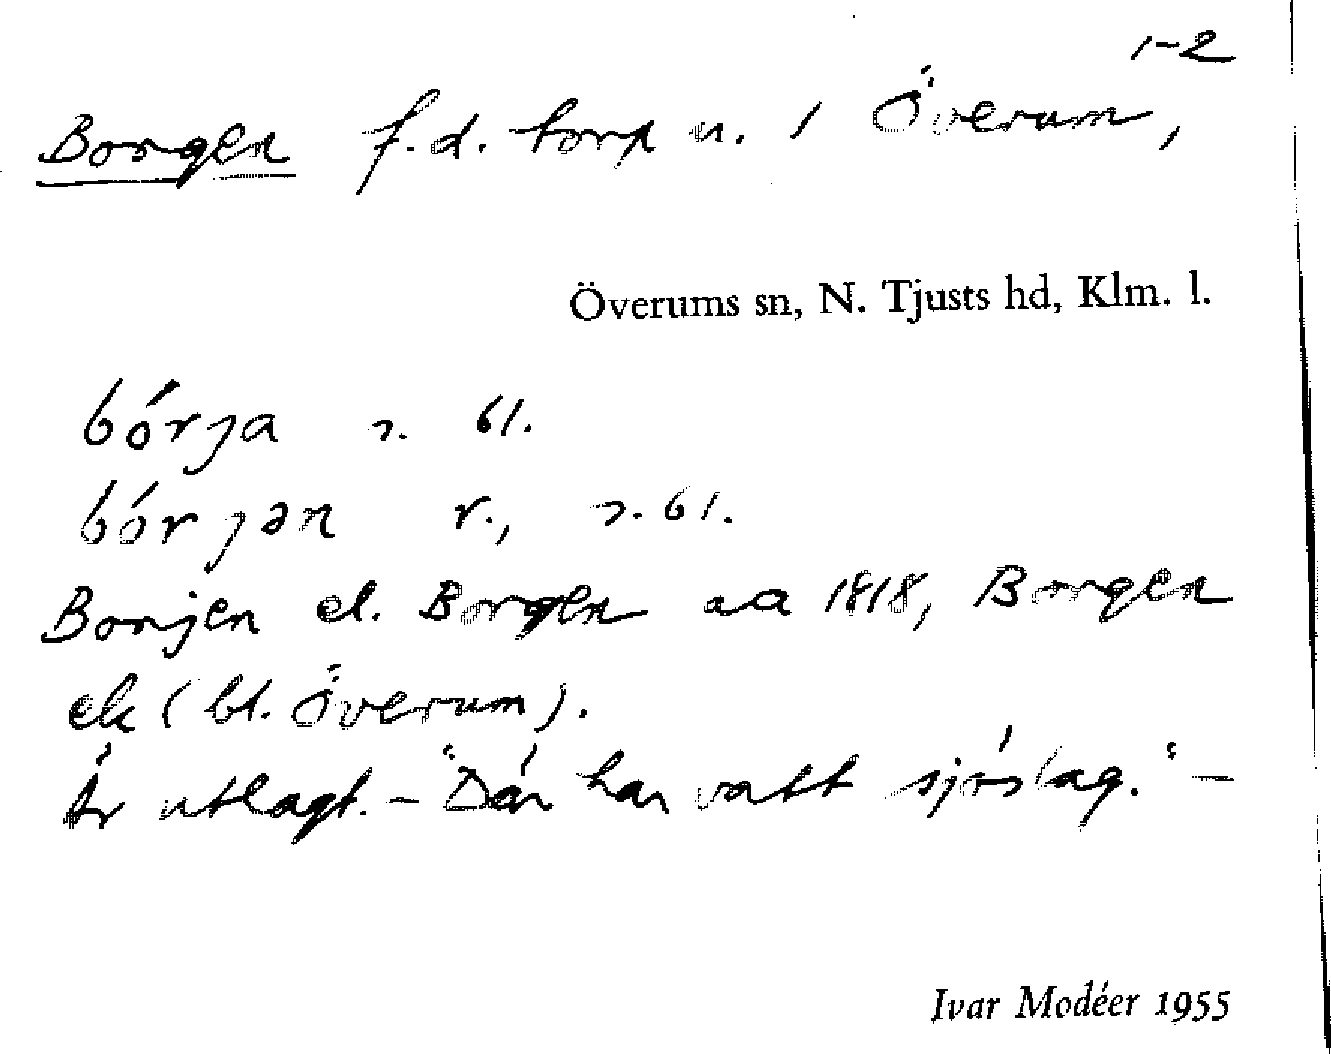 1-2
Borgen f.d. torp u. 1 Överum,
Överums sn, N. Tjusts hd, Klm. l.
bórja 2. 61.
bórjən r., 2. 61.
Borjen el. Borgen aa 1818, Borgen
ek (bl. Överum).
Är utlagt. – "Där har vatt sjöslag." –
Ivar Modéer 1955